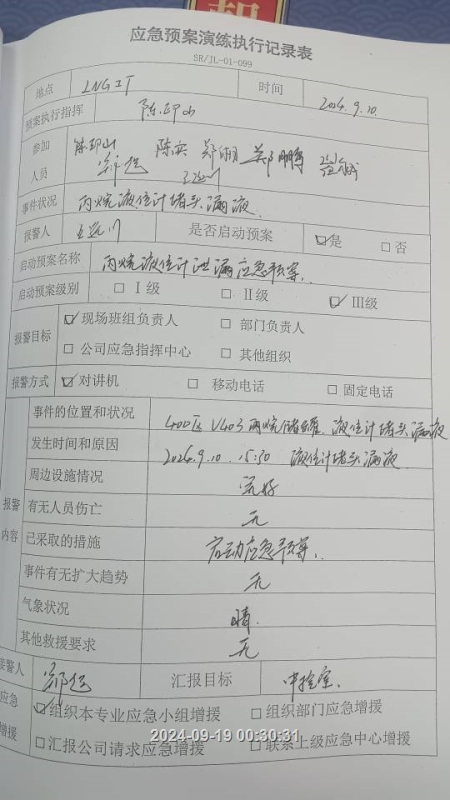 应急预案演练执行记录表
SR/JL-01-099
地点 LNG工厂 时间 2024.9.10
预案执行指挥 陈印山
参加人员 陈印山 陈兵 郑湖 郑鹏
事件状况 丙烷液位计堵头漏液
报警人 是否启动预案 ☑是 □否
启动预案名称 丙烷液位计泄漏应急预案
启动预案级别 □Ⅰ级 □Ⅱ级 ☑Ⅲ级
报警目标 ☑现场班组负责人 □部门负责人
□公司应急指挥中心 □其他组织
报警方式 ☑对讲机 □移动电话 □固定电话
报警内容
事件的位置和状况 400区V403丙烷储罐液位计堵头漏液
发生时间和原因 2024.9.10 15:30 液位计堵头漏液
周边设施情况 完好
有无人员伤亡 无
已采取的措施 启动应急预案
事件有无扩大趋势 无
气象状况 晴
其他救援要求 无
接警人 汇报目标 中控室
应急增援 ☑组织本专业应急小组增援 □组织部门应急增援
□汇报公司请求应急增援 □联系上级应急中心增援
2024-09-19 00:30:31